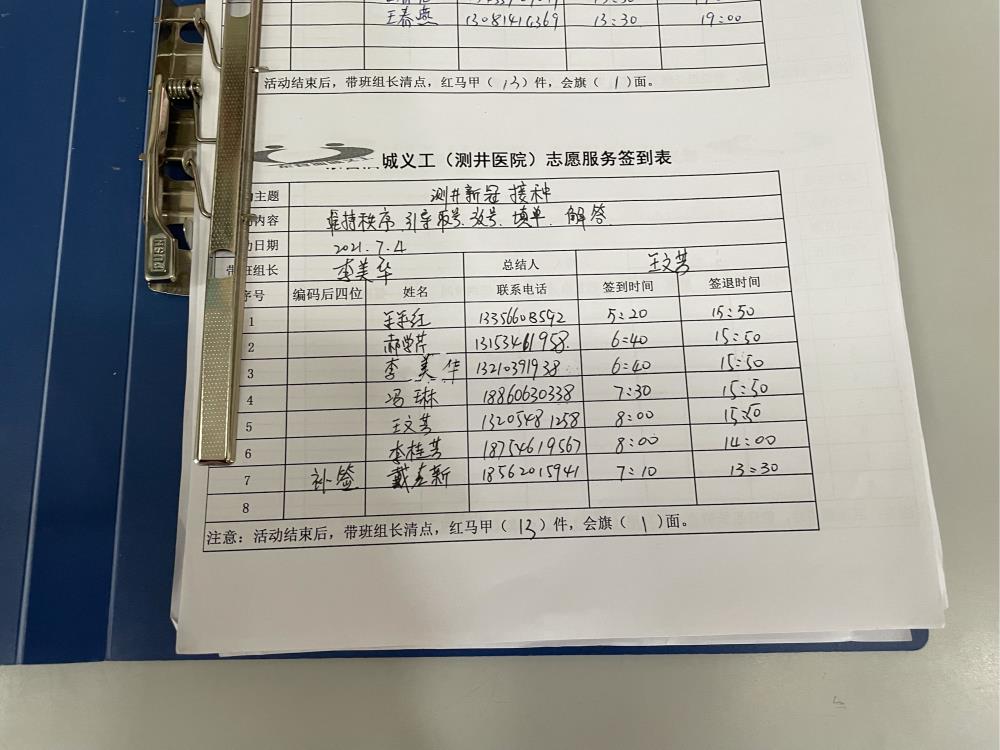 王春燕 13081414369 13:30 19:00
活动结束后，带班组长清点，红马甲（ 13 ）件，会旗（ 1 ）面。
城义工（测井医院）志愿服务签到表
主题 测井新冠接种
内容 维持秩序、引导取号、发号、填单、解答
日期 2021.7.4
带班组长 李美华 总结人 王文芳
序号 编码后四位 姓名 联系电话 签到时间 签退时间
1 13356603592 5:20 15:50
2 郝学芹 13153461958 6:40 15:50
3 李美华 13210391938 6:40 15:50
4 冯琳 18860630338 7:30 15:50
5 王文芳 13205481258 8:00 15:50
6 李桂芳 18754619567 8:00 14:00
7 补签 戴新 18562015941 7:10 13:30
8
注意：活动结束后，带班组长清点，红马甲（ 13 ）件，会旗（ 1 ）面。
PUSH